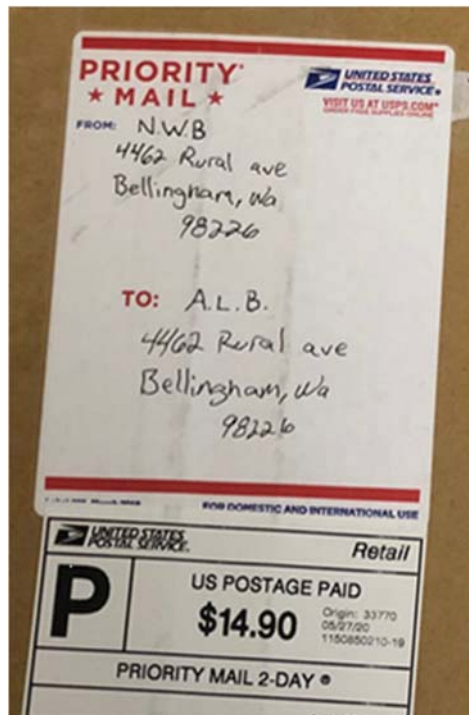 PRIORITY®
★ MAIL ★
UNITED STATES
POSTAL SERVICE®
VISIT US AT USPS.COM®
ORDER FREE SUPPLIES ONLINE
FROM: N.W.B
4462 Rural ave
Bellingham, Wa
98226
TO: A.L.B.
4462 Rural ave
Bellingham, Wa
98226
FOR DOMESTIC AND INTERNATIONAL USE
UNITED STATES
POSTAL SERVICE®
Retail
P
US POSTAGE PAID
$14.90
Origin: 33770
05/27/20
1150850210-19
PRIORITY MAIL 2-DAY ®